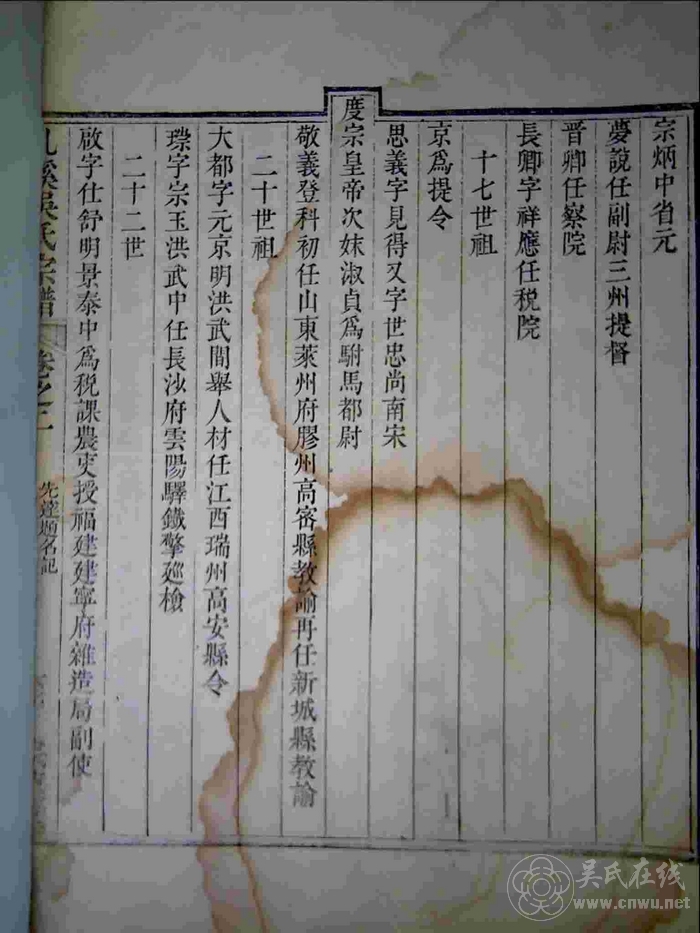 宗炳中省元
夢說任副尉三州提督
晉卿任察院
長卿字祥應任税院
十七世祖
京爲提令
思義字見得又字世忠尚南宋
度宗皇帝次妹淑貞爲駙馬都尉
敬義登科初任山東萊州府膠州高密縣教諭再任新城縣教諭
二十世祖
大都字元京明洪武間舉人材任江西瑞州高安縣令
瑺字宗玉洪武中任長沙府雲陽驛鐵擎廵檢
二十二世
啟字仕舒明景泰中爲税課農吏授福建建寧府雜造局副使
溪吳氏宗譜
卷之二
先達題名記
吴氏在线
www.cnwu.net